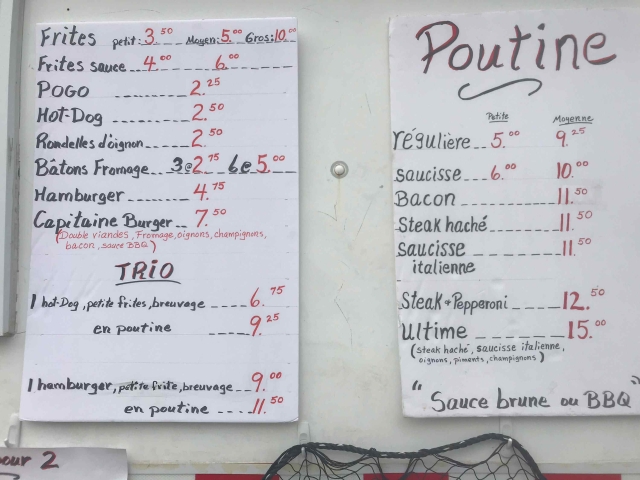 Frites petit: 3.50 Moyen: 5.00 Gros: 10.00
Frites sauce 4.00 6.00
POGO 2.25
Hot-Dog 2.50
Rondelles d'oignon 2.50
Bâtons Fromage 3@2.75 6@5.00
Hamburger 4.75
Capitaine Burger 7.50
(Double viandes, Fromage, oignons, champignons,
bacon, sauce BBQ)
TRIO
1 hot-Dog, petite frites, breuvage 6.75
en poutine 9.25
1 hamburger, petite frite, breuvage 9.00
en poutine 11.50
our 2
Poutine
Petite Moyenne
régulière 5.00 9.25
saucisse 6.00 10.00
Bacon 11.50
Steak haché 11.50
saucisse 11.50
italienne
Steak + Pepperoni 12.50
Ultime 15.00
(steak haché, saucisse italienne,
oignons, piments, champignons)
"Sauce brune ou BBQ"